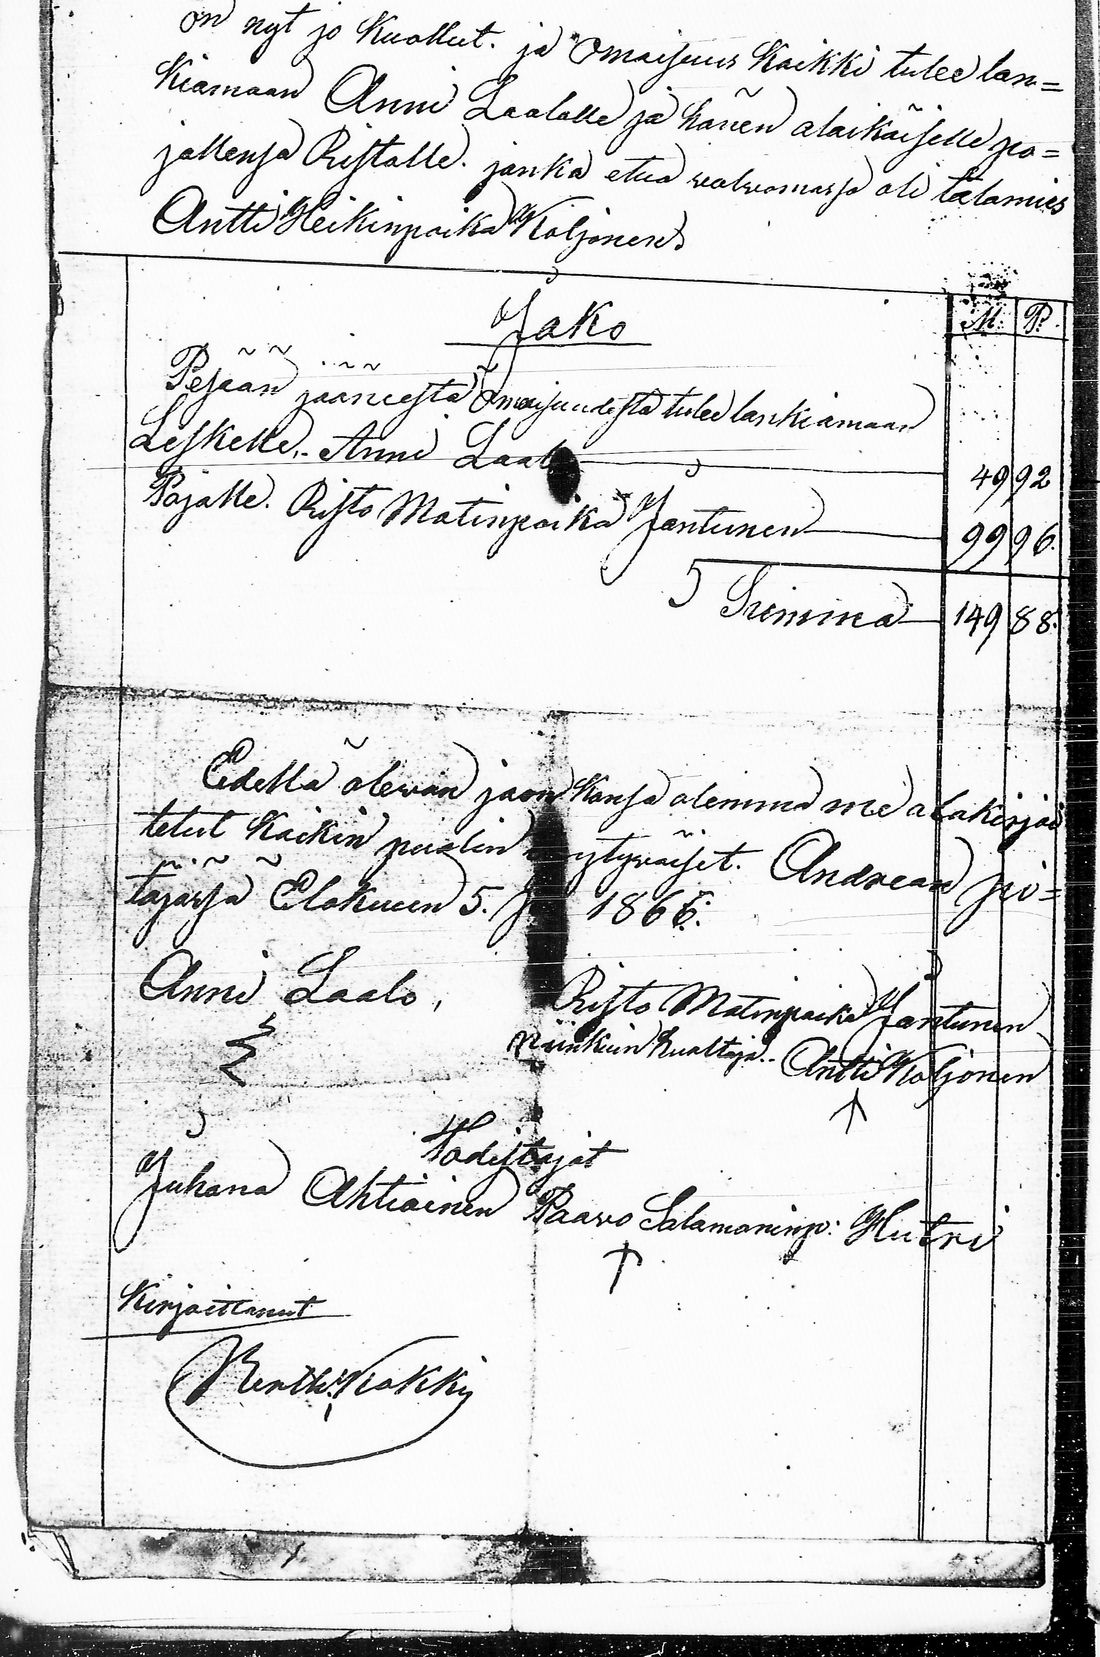 on nyt jo Kuollut. ja Omaisuus Kaikki tulee lan=
kiamaan Anni Laalolle ja hänen alaikäiselle po=
jallensa Ristolle. jonka etua walwomassa oli talamies
Antti Heikinpoika Koljonen.
Jako
M. P.
Pesään jääneestä Omaisuudesta tulee lankiamaan
Leskelle. Anni Laalo 49 92
Pojalle. Risto Matinpoika Jantunen 99 96.
Summa 149 88.
Edellä olewan jaon Kansa olemma me alakirjoi
tetut Kaikin puolin tytywäiset. Andrean pi=
täjässä Elokuun 5. 1866.
Anni Laalo,
Risto Matinpoika Jantunen
niinkuin huoltaja. Antti Koljonen
Todistajat
Juhana Ahtiainen Paavo Salamoninp: Hutri
Kirjoittanut
Kokki